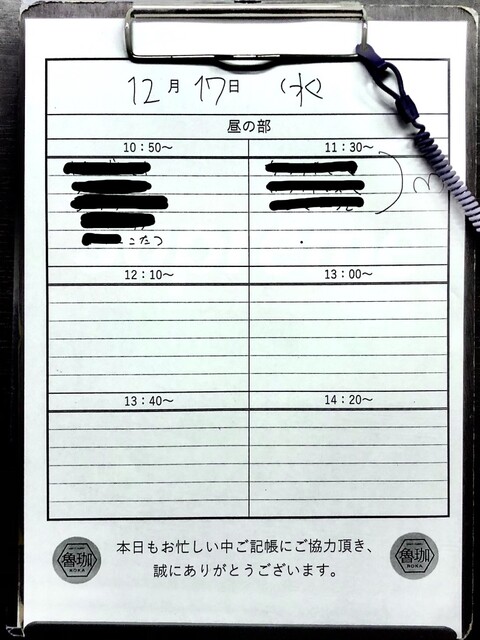 12月17日 (水)
昼の部
10：50〜 11：30〜
こたつ
3
12：10〜 13：00〜
13：40〜 14：20〜
本日もお忙しい中ご記帳にご協力頂き、
誠にありがとうございます。
魯珈 魯珈
ROKA ROKA